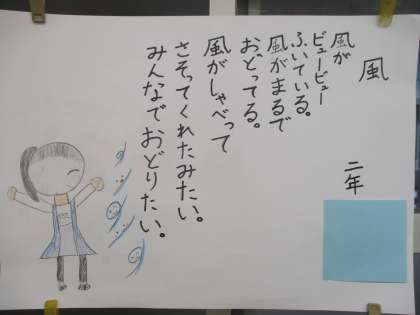 風
二年
風が
ビュービュー
ふいている。
風がまるで
おどってる。
風がしゃべって
さそってくれたみたい。
みんなでおどりたい。